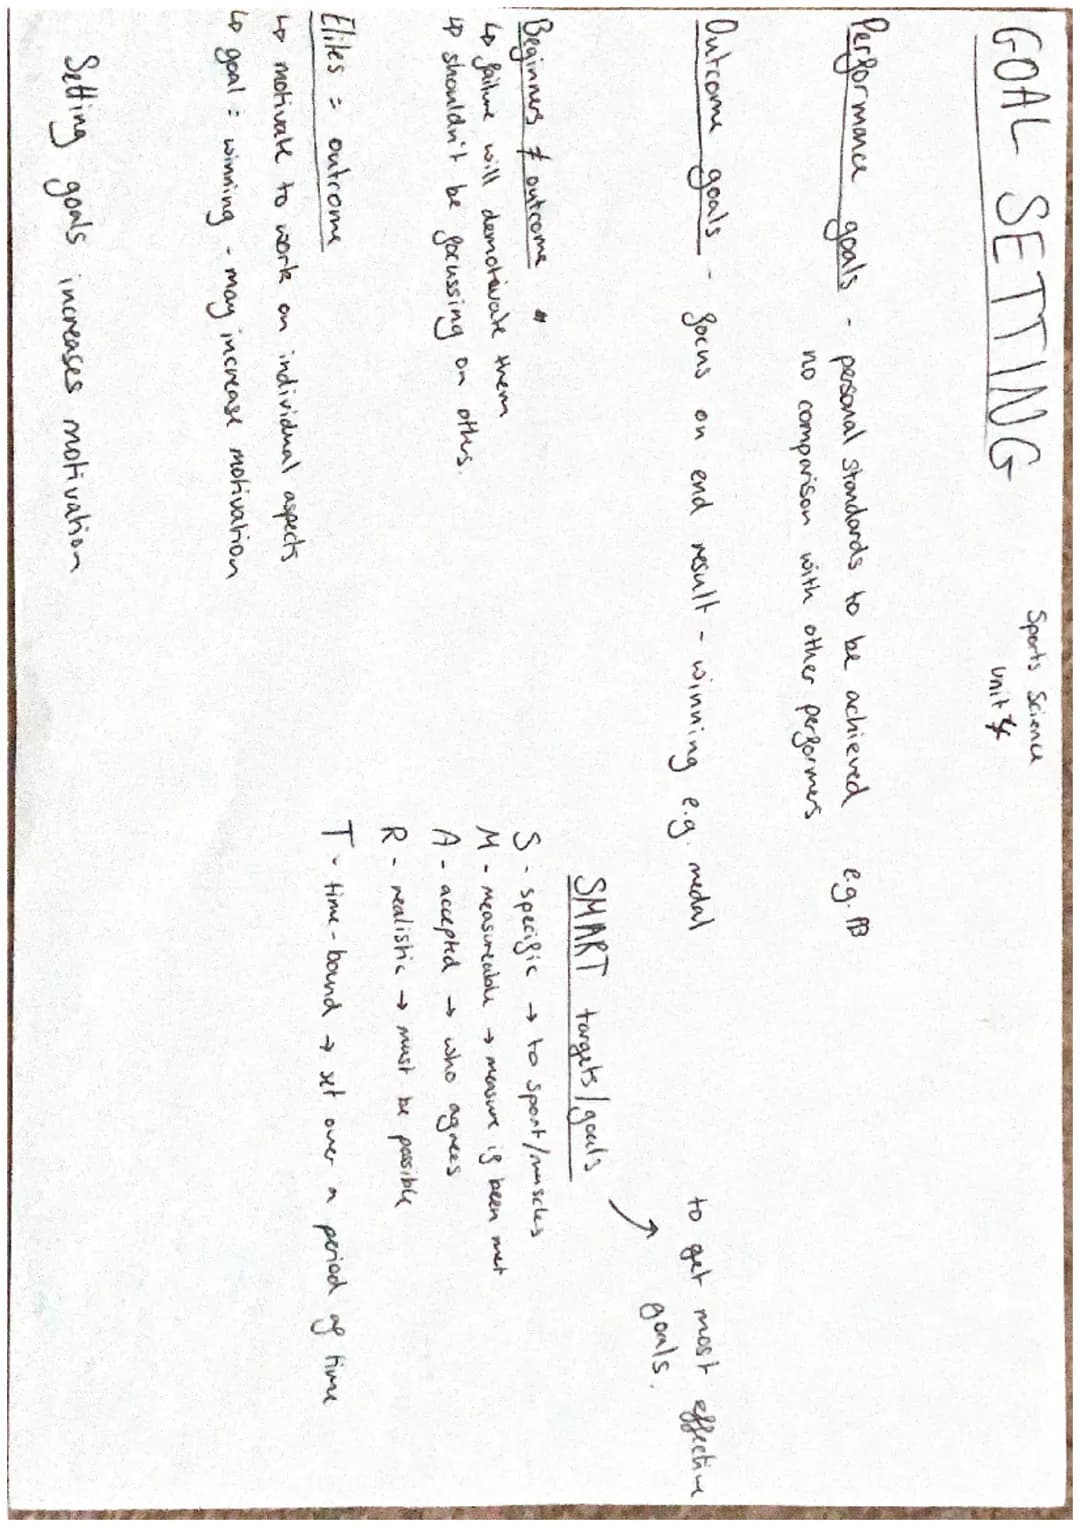 GOAL SETTING
Sports Science
unit
Performance goals - personal standards to be achieved e.g. PB
no comparison with other performers
Outcome goals - focus on end result - winning e.g. medal
Beginners ≠ outcome
↳ failure will demotivate them
↳ shouldn't be focussing on others.
Elites = outcome
↳ motivate to work on individual aspects
↳ goal = winning - may increase motivation
Setting goals increases motivation
to get most effective
goals.
SMART targets/goals
S - specific → to sport/muscles
M - measureable → measure if been met
A - accepted → who agrees
R - realistic → must be possible
T - time-bound → set over a period of time